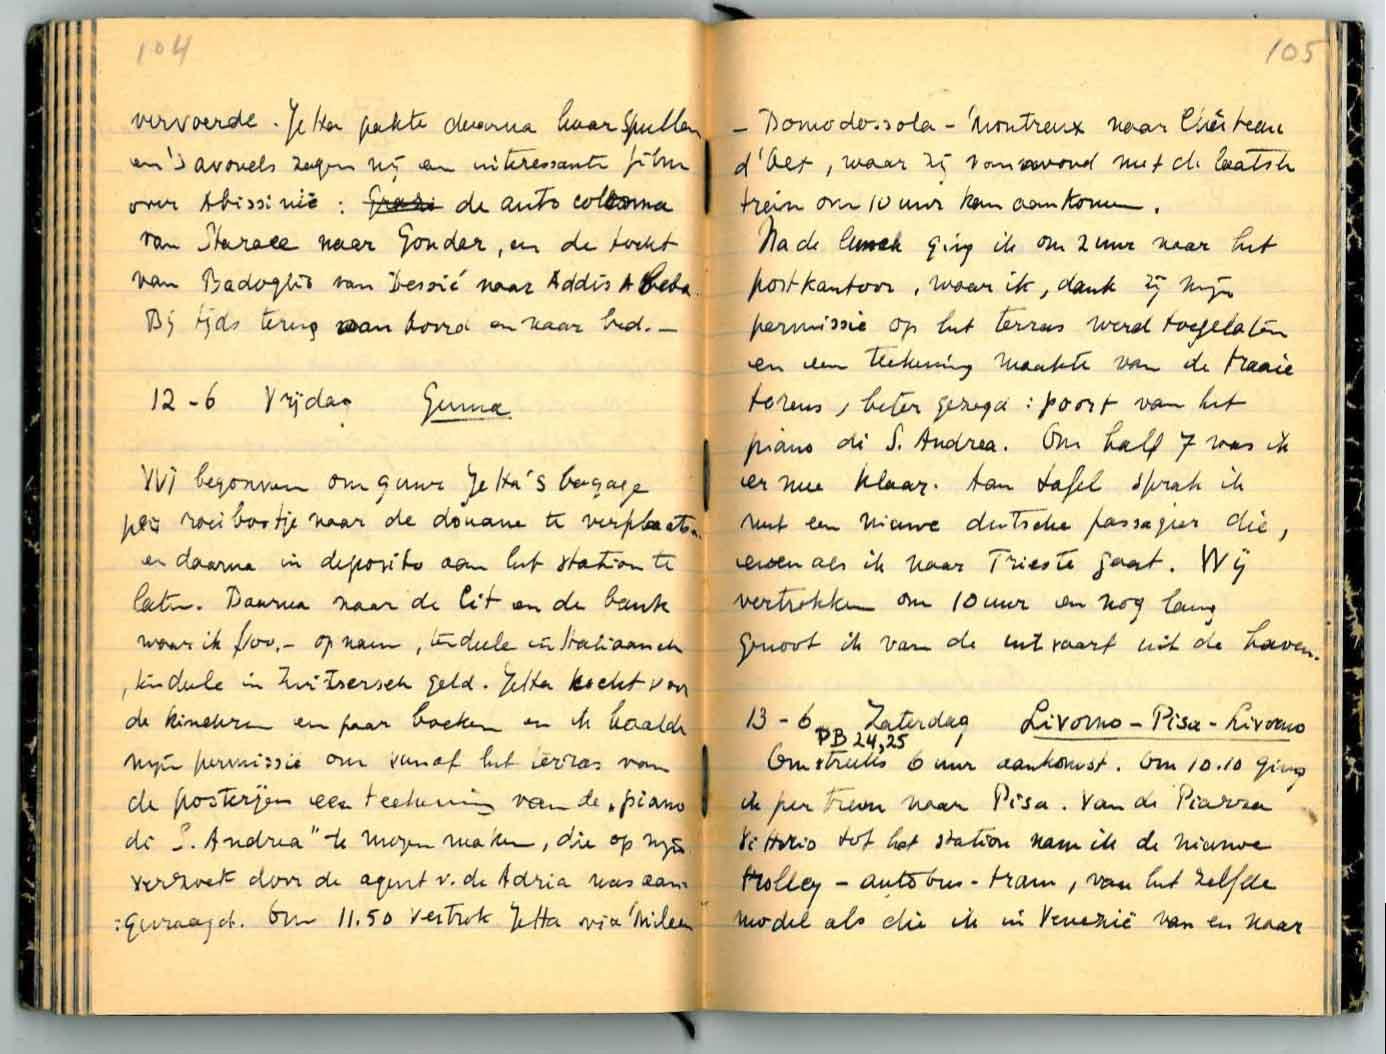 104
vervoerde. Jetta pakte daarna haar spullen
en 's avonds zagen wij een interessante film
over Abissinië : de auto colonna
van Starace naar Gondar, en de tocht
van Badoglio van Dessié naar Addis Abeba.
Bij tijds terug aan boord en naar bed. —
12-6 Vrijdag Genua
Wij begonnen om 9 uur Jetta's bagage
per roeibootje naar de douane te verplaatsen
en daarna in deposito aan het station te
laten. Daarna naar de Cit en de bank
waar ik f100,- opnam, ten deele in Italiaansch
, ten deele in Zwitsersch geld. Jetta kocht voor
de kinderen een paar boeken en ik haalde
mijn permissie om vanaf het terras van
de posterijen een teekening van de „piano
di S. Andrea" te mogen maken, die op mijn
verzoek door de agent v. de Adria was aan-
:gevraagd. Om 11.50 vertrok Jetta via Milaan
105
- Domodossola - Montreux naar Château
d'Oex, waar zij vanavond met de laatste
trein om 10 uur kan aankomen.
Na de lunch ging ik om 2 uur naar het
postkantoor, waar ik, dank zij mijn
permissie op het terras werd toegelaten
en een teekening maakte van de fraaie
torens, beter gezegd : poort van het
piano di S. Andrea. Om half 7 was ik
er mee klaar. Aan tafel sprak ik
met een nieuwe duitsche passagier die,
evenals ik naar Trieste gaat. Wij
vertrokken om 10 uur en nog lang
genoot ik van de uitvaart uit de haven.
13-6 Zaterdag Livorno - Pisa - Livorno
PB 24,25
Omstreeks 6 uur aankomst. Om 10.10 ging
ik per trein naar Pisa. Van de Piazza
Vittorio tot het station nam ik de nieuwe
trolley - autobus - tram, van het zelfde
model als die ik in Venezië van en naar